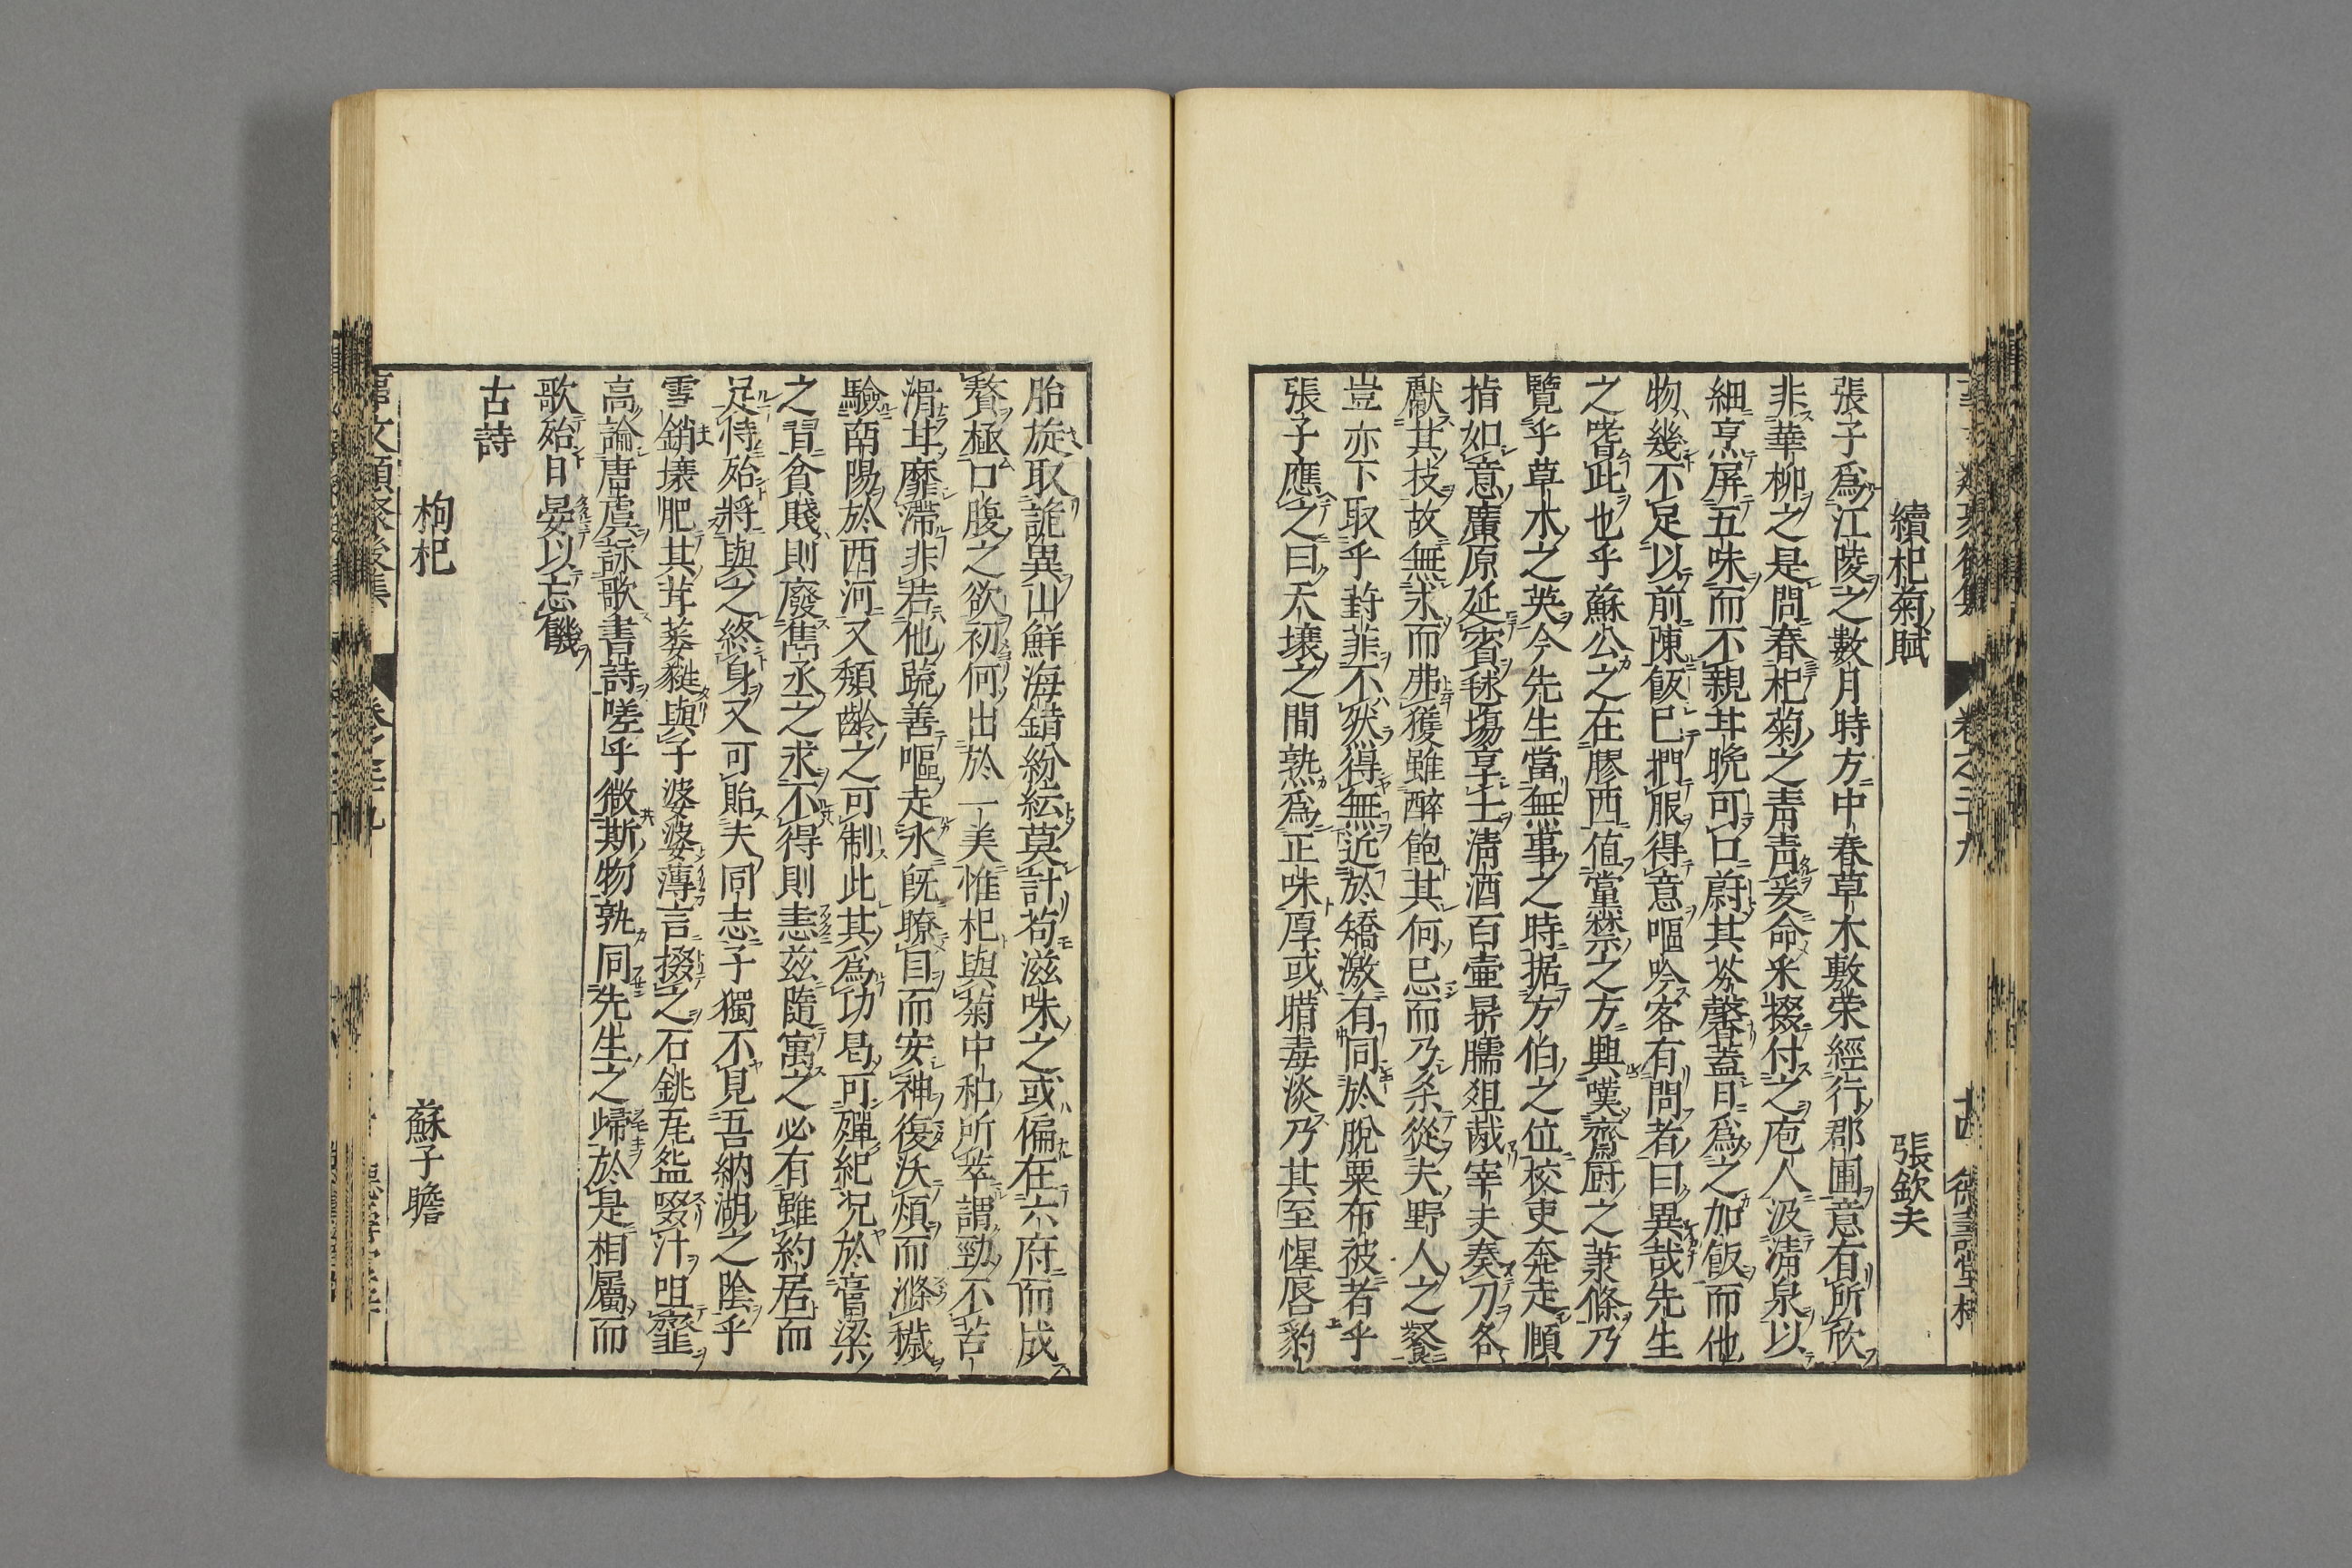 續杞菊賦 張欽夫
張子爲江陵之數月時方中春草木敷荣經行郡圃意有所欣
非華柳之是問春杞菊之青青爰命采掇付之庖人汲清泉以
細烹屏五味而不親甘脆可口蔚其芬馨蓋日爲之加飯而他
物幾不足以前陳飯已捫腹得意嘔吟客有問者曰異哉先生
之嗜此也乎蘇公之在膠西值黨禁之方興嘆齋厨之䔥條乃
覽乎草木之英今先生當無事之時据方伯之位校吏奔走順
指如意廣原延賓毬塲享士清酒百壷鼎臑俎胾宰夫奏刀各
獻其技故無求而弗獲雖醉飽其何忌而乃杀從夫野人之餐
豈亦下取乎葑菲不然得無近於矯激有同於脫粟布被者乎
張子應之曰天壤之間孰爲正味厚或腊毒淡乃其至惺唇豹
胎旋取詭異山鮮海錯紛紜莫計苟滋味之或偏在六府而成
贅極口腹之欲初何出於一美惟杞與菊中和所萃謂勁不苦
滑甘靡滯非若他蔬善嘔走水旣瞭目而安神復沃煩而滌穢
驗南陽於西河又頽齡之可制此其爲功曷可殫紀况於膏梁
之習貧賤則廢雋永之求不得則恚兹隨寓之必有雖約居而
足恃殆將與之終身又可貽夫同志子獨不見吾納湖之陰乎
雪銷壤肥其茸葳蕤與子婆娑薄言掇之石銚瓦盌啜汁咀韲
高論唐虞詠歌書詩嗟乎微斯物孰同先生之歸於是相屬而
歌殆日晏以忘饑
古詩
枸杞 蘇子瞻